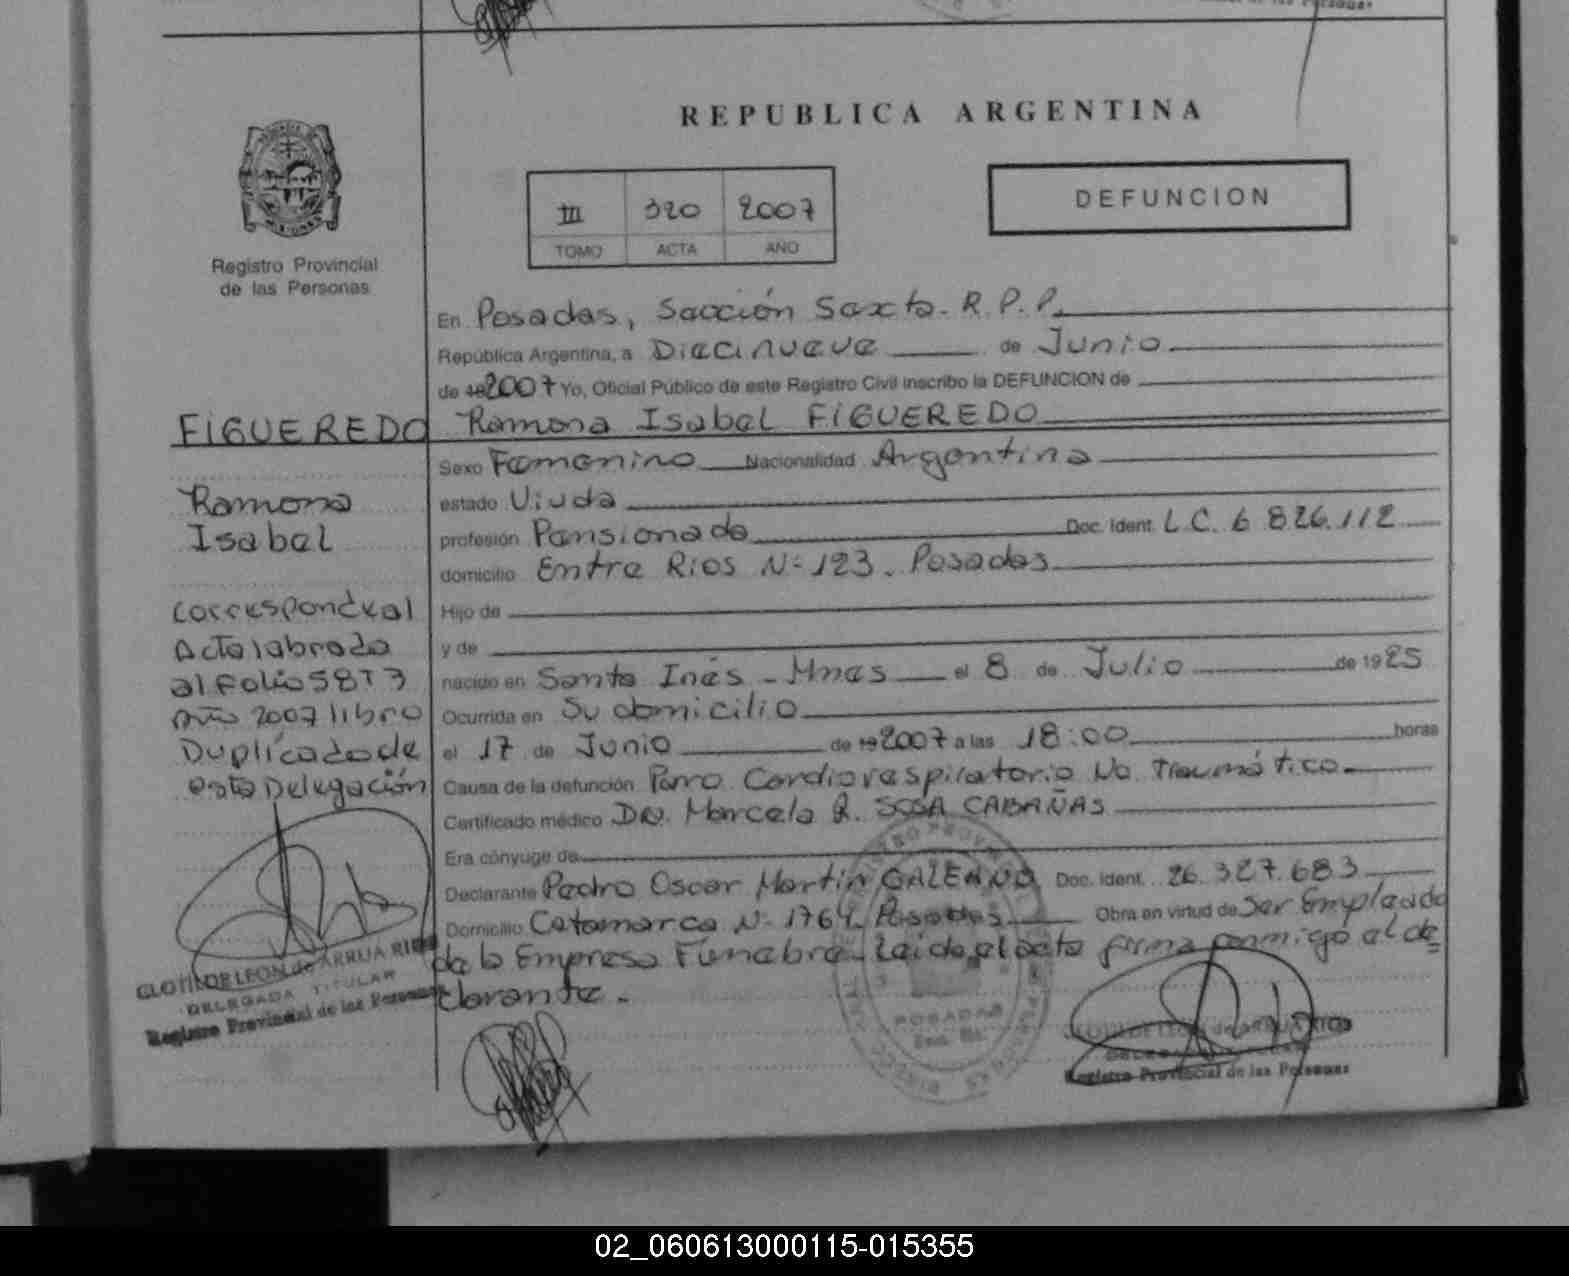 REPUBLICA ARGENTINA
III 320 2007
TOMO ACTA AÑO
DEFUNCION
Registro Provincial
de las Personas
En Posadas, Sección Sexta. R.P.P.
República Argentina, a Diecinueve de Junio
de 19 2007 Yo, Oficial Público de este Registro Civil inscribo la DEFUNCION de
FIGUEREDO Ramona Isabel FIGUEREDO
Sexo Femenino Nacionalidad Argentina
Ramona
Isabel
estado Viuda
profesión Pensionada Doc. Ident. L.C. 6.826.112
domicilio Entre Rios Nº 123. Posadas
Hijo de
y de
nacido en Santa Inés - Mnes el 8 de Julio de 1925
Ocurrida en Su domicilio
el 17 de Junio de 19 2007 a las 18:00 horas
Causa de la defunción Paro Cardiorespiratorio No Traumático
Certificado médico Dr. Marcelo R. SOSA CABAÑAS
Era cónyuge de
Declarante Pedro Oscar Martin GALEANO Doc. Ident. 26.327.683
Domicilio Catamarca Nº 1764. Posadas Obra en virtud de Ser Empleado
de la Empresa Funebre. Leida el acta firma conmigo el de=
clarante.
Corresponde al
Acta labrada
al folio 58 T 3
Año 2007 libro
Duplicado de
esta Delegación
CLOTILDE LEON de ARRUA RIOS
DELEGADA TITULAR
Registro Provincial de las Personas
POSADAS
LEON de ARRUA RIOS
Registro Provincial de las Personas
02_060613000115-015355